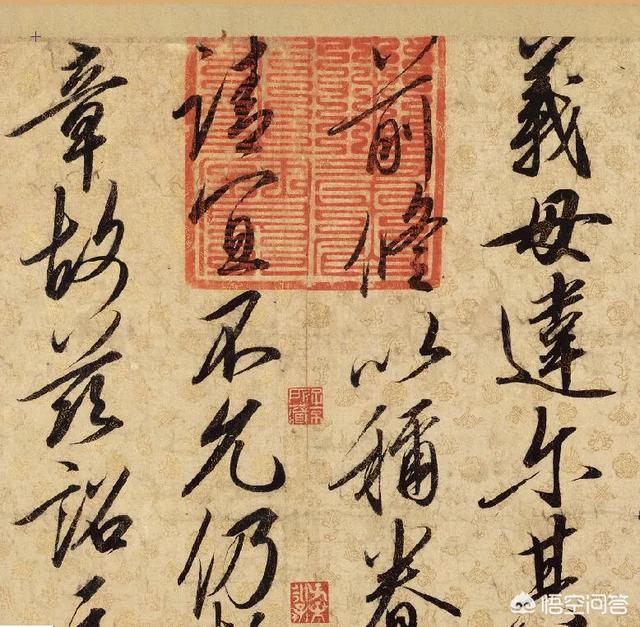 義毋違尔其
前脩以稱眷
請宜不允仍
章故茲詔示
悟空问答